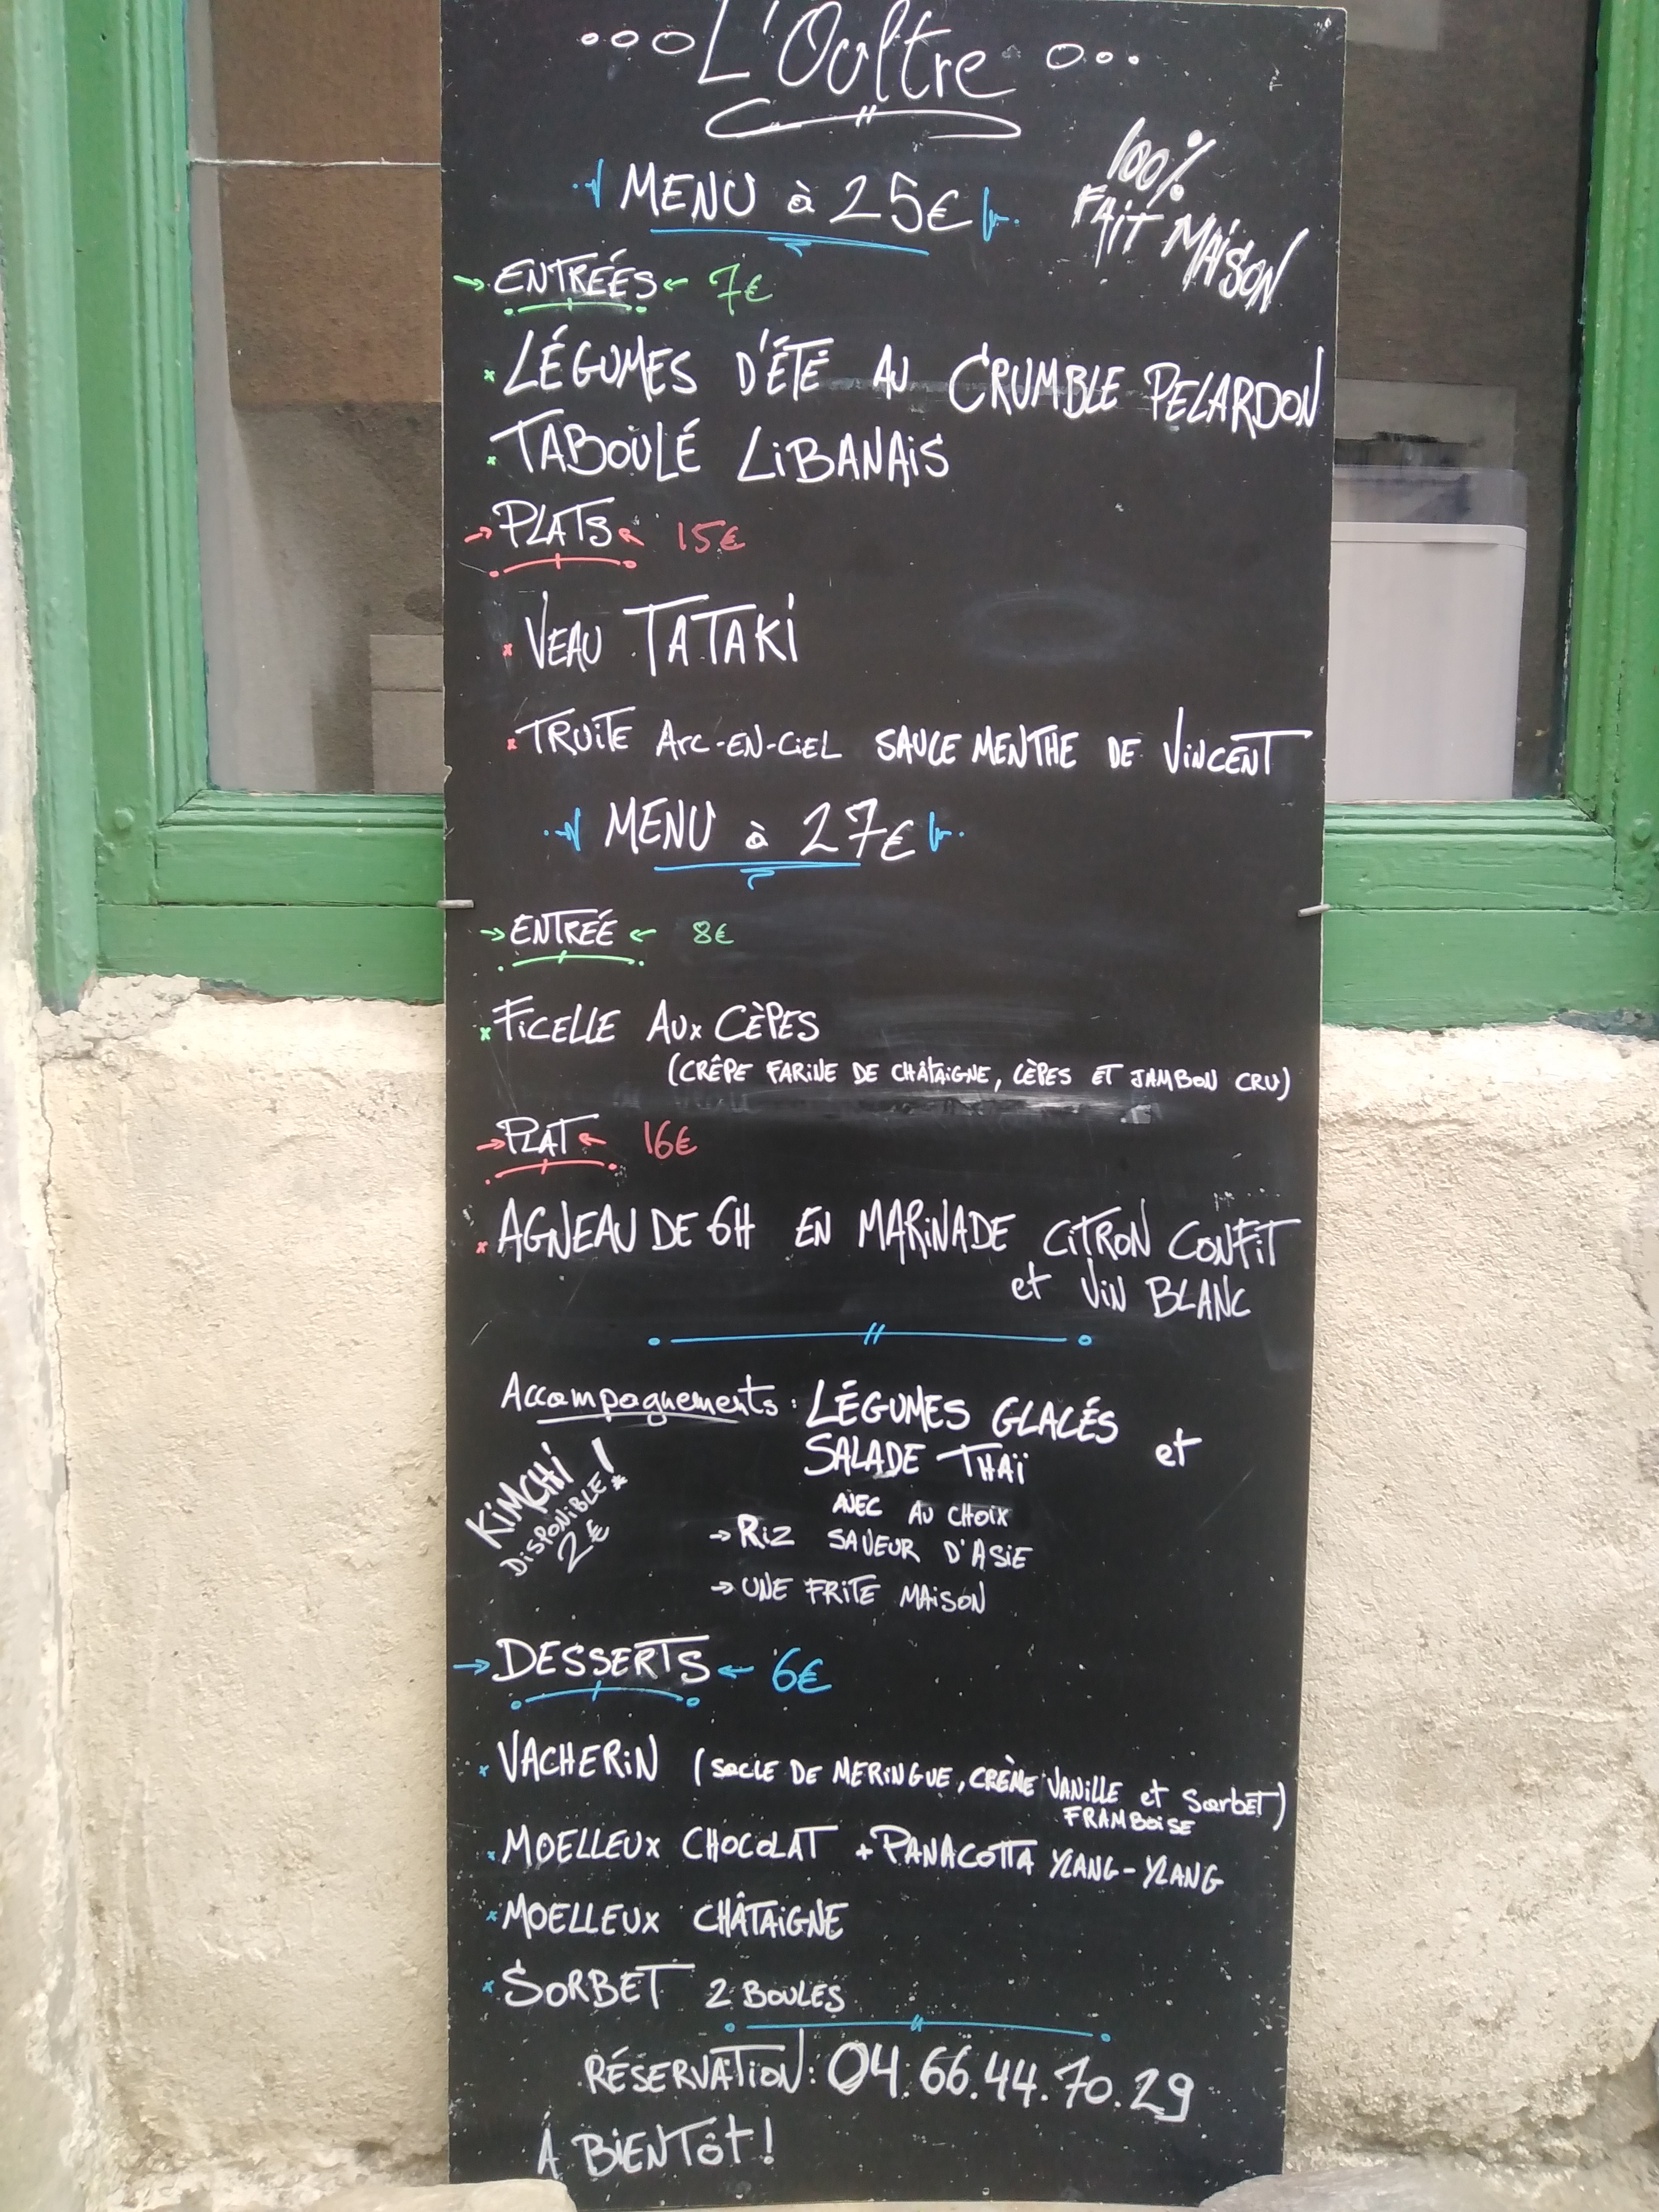 L'Oultre
MENU à 25€
100%
FAIT MAISON
ENTRÉES 7€
LÉGUMES D'ÉTÉ AU CRUMBLE PELARDON
TABOULÉ LIBANAIS
PLATS 15€
VEAU TATAKI
TRUITE ARC-EN-CIEL SAUCE MENTHE DE VINCENT
MENU à 27€
ENTRÉE 8€
FICELLE AUX CÈPES
(CRÊPE FARINE DE CHÂTAIGNE, CÈPES ET JAMBON CRU)
PLAT 16€
AGNEAU DE 6H EN MARINADE CITRON CONFIT
et VIN BLANC
Accompagnements : LÉGUMES GLACÉS et
SALADE THAÏ
AVEC AU CHOIX
→ RIZ SAVEUR D'ASIE
→ UNE FRITE MAISON
KIMCHI
DISPONIBLE !
2€
DESSERTS 6€
VACHERIN (SOCLE DE MERINGUE, CRÈME VANILLE et SORBET)
FRAMBOISE
MOELLEUX CHOCOLAT + PANACOTTA YLANG-YLANG
MOELLEUX CHÂTAIGNE
SORBET 2 BOULES
RÉSERVATION : 04.66.44.70.29
À BIENTÔT !